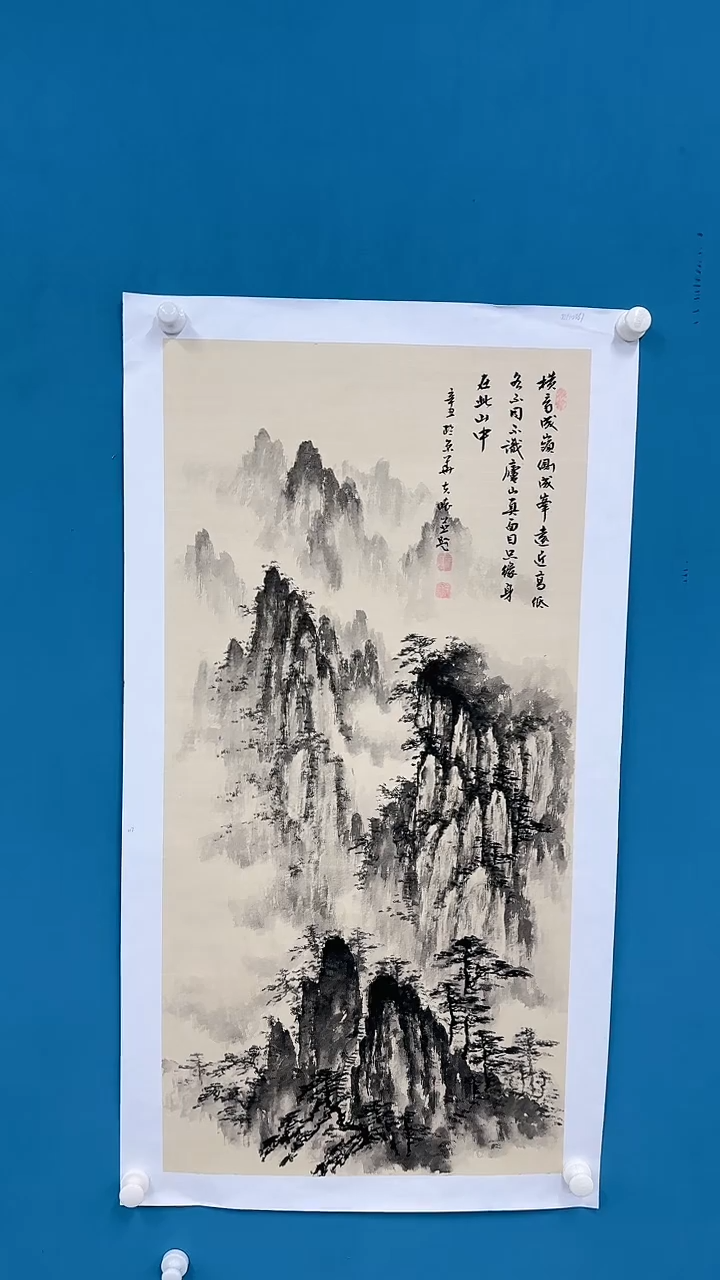 橫看成嶺側成峯遠近高低
各不同不識廬山真面目只緣身
在此山中
辛丑於京華